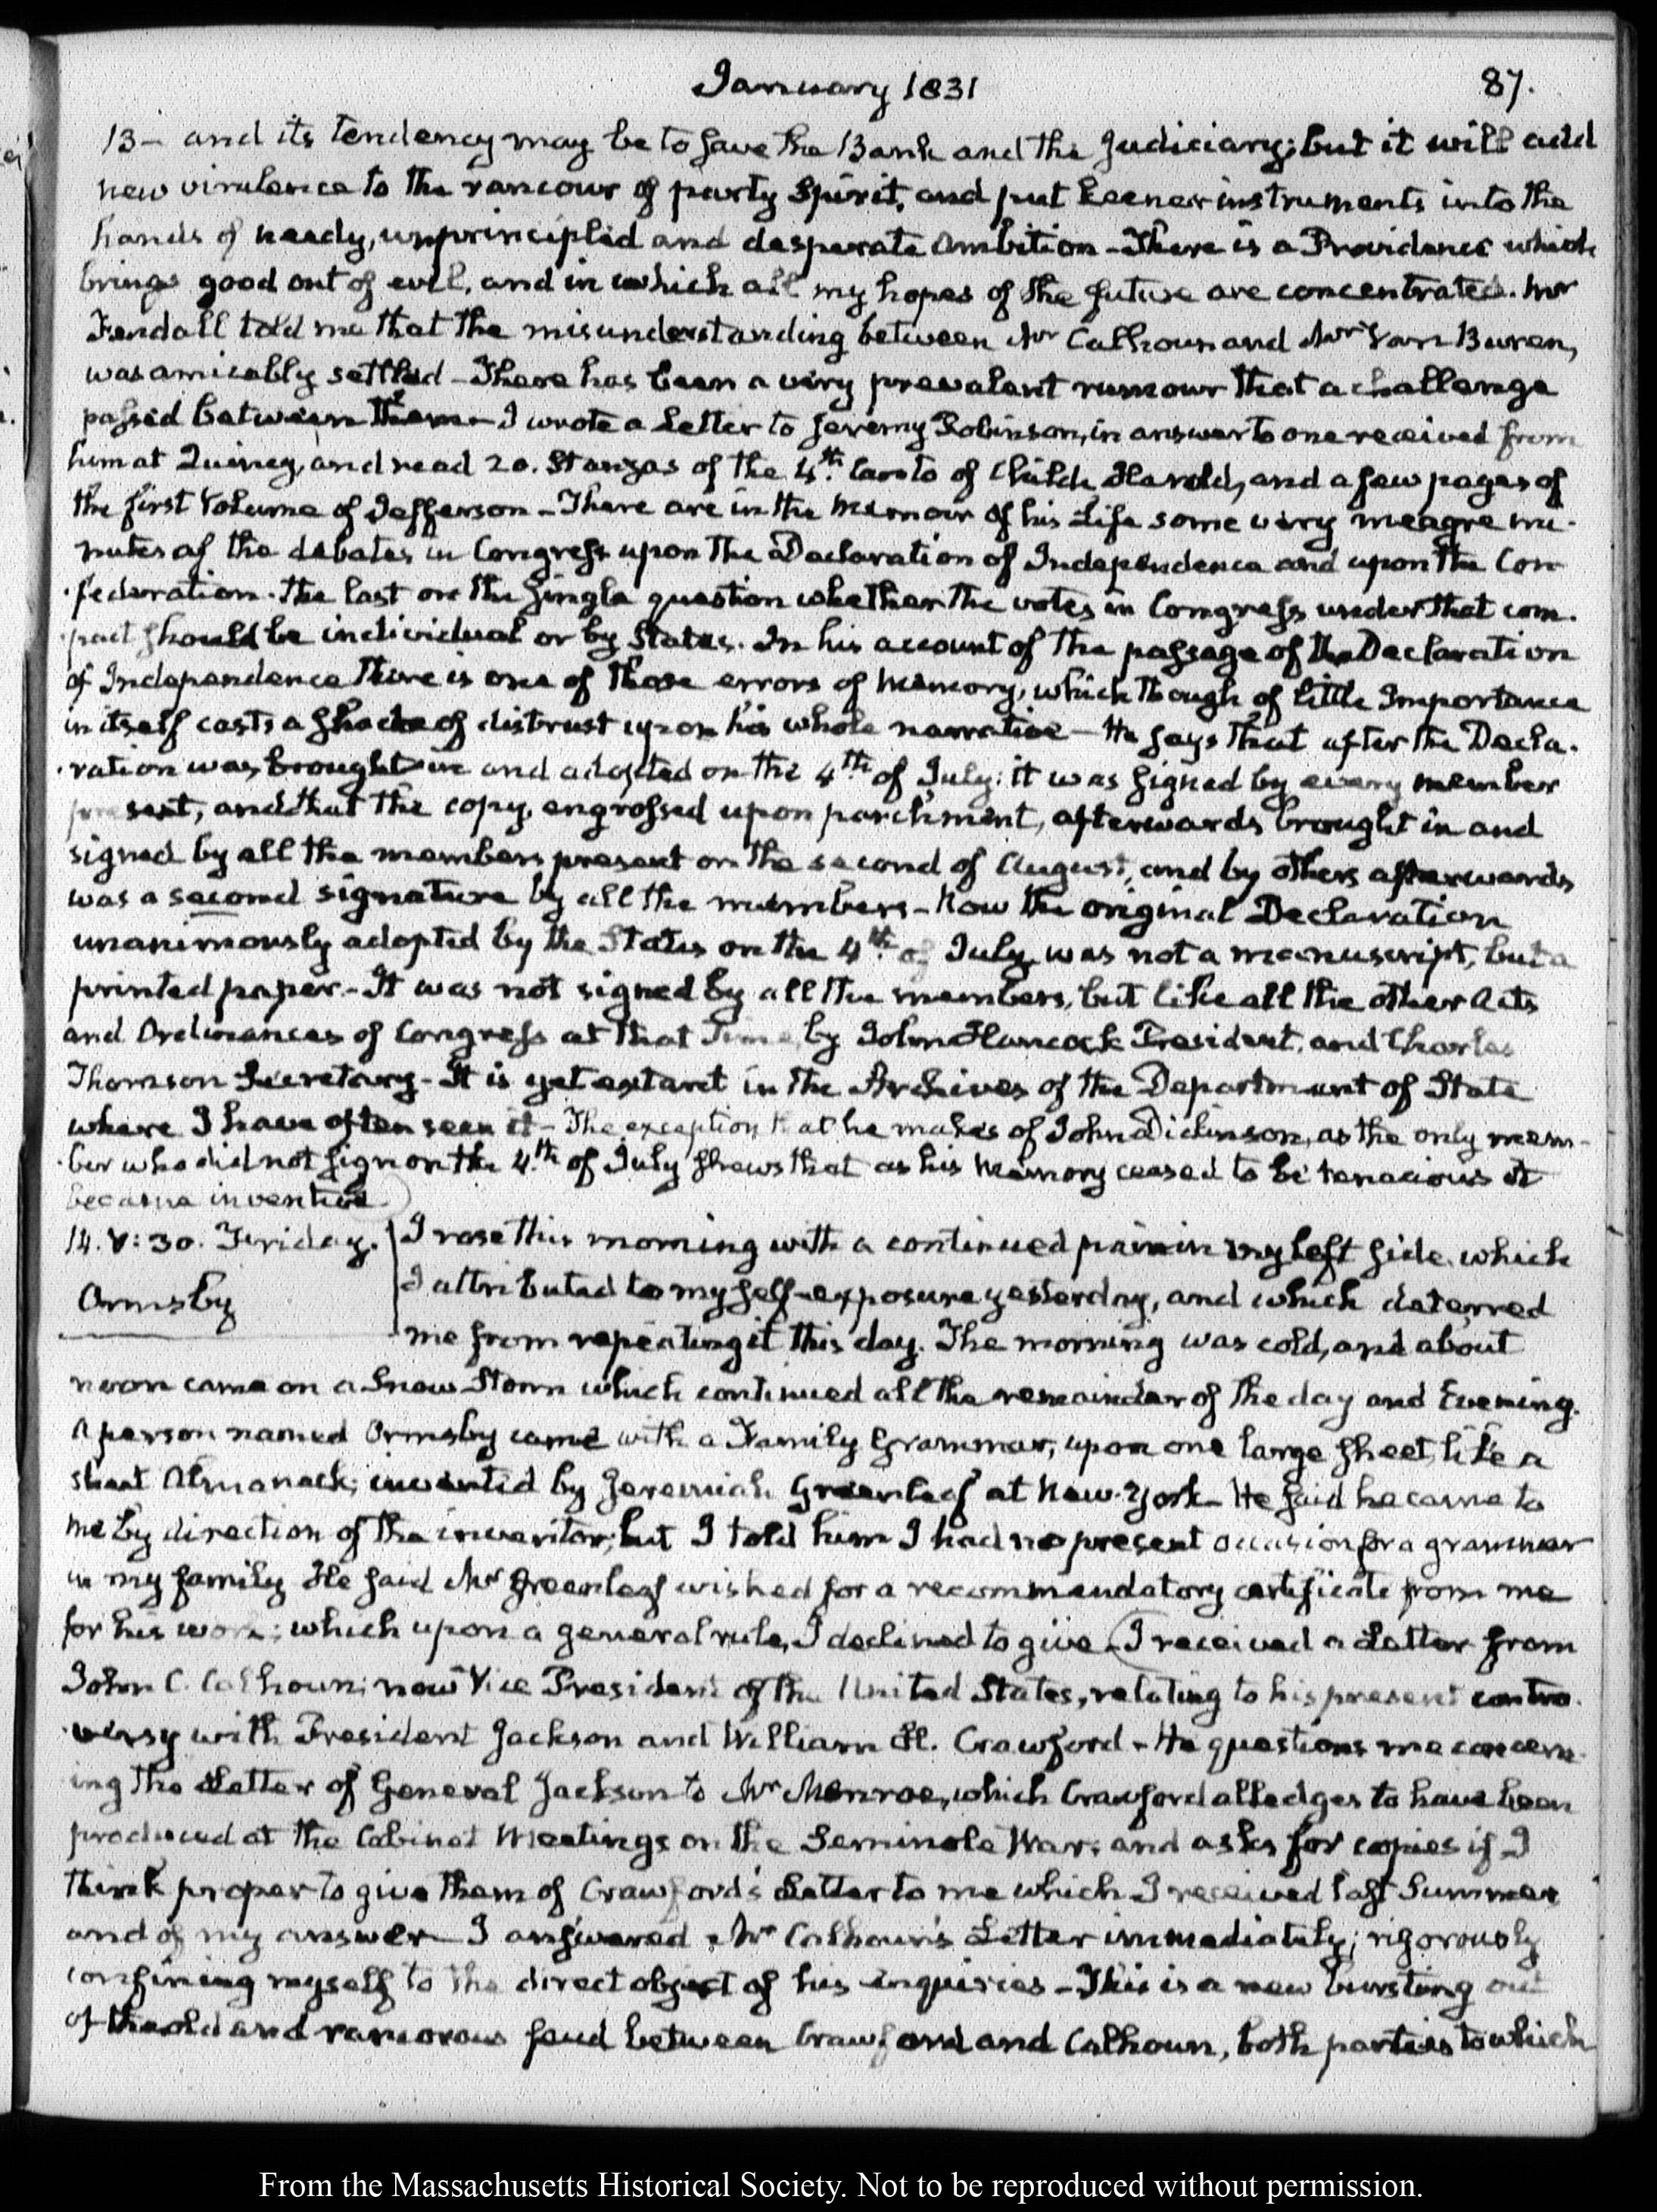 January 1831
87.
13- and its tendency may be to save the Bank and the Judiciary; but it will add
new virulence to the rancour of party Spirit, and put keener instruments into the
hands of needy, unprincipled and desperate Ambition - There is a Providence which
brings good out of evil, and in which all my hopes of the future are concentrated. Mr
Fendall told me that the misunderstanding between Mr Calhoun and Mr Van Buren,
was amicably settled - There has been a very prevalent rumour that a challenge
passed between them - I wrote a Letter to Jeremy Robinson, in answer to one received from
him at Quincy, and read 20. Stanzas of the 4th. Canto of Childe Harold, and a few pages of
the first Volume of Jefferson - There are in the Memoir of his Life some very meagre mi-
nutes of the debates in Congress upon the Declaration of Independence and upon the Con-
federation. The last on the single question whether the votes in Congress under that com-
pact should be individual or by States. In his account of the passage of the Declaration
of Independence there is one of those errors of Memory, which though of little Importance
in itself casts a shade of distrust upon his whole narrative - He says that after the Decla-
ration was brought in and adopted on the 4th of July: it was signed by every member
present, and that the copy, engrossed upon parchment, afterwards brought in and
signed by all the members present on the second of August, and by others afterwards
was a second signature by all the members - Now the original Declaration
unanimously adopted by the States on the 4th. of July was not a manuscript, but a
printed paper. - It was not signed by all the members, but like all the other Acts
and Ordinances of Congress at that Time, by John Hancock President, and Charles
Thomson Secretary - It is yet extant in the Archives of the Department of State
where I have often seen it - The exception that he makes of John Dickinson, as the only mem-
ber who did not sign on the 4th. of July shews that as his Memory ceased to be tenacious it
became inventive
14. V: 30. Friday. I rose this morning with a continued pain in my left side, which
Ormsby I attributed to my self-exposure yesterday, and which deterred
me from repeating it this day. The morning was cold, and about
noon came on a Snow-Storm which continued all the remainder of the day and Evening.
A person named Ormsby came with a Family Grammar, upon one large sheet, like a
sheet Almanack; invented by Jeremiah Greenleaf at New-York - He said he came to
me by direction of the inventor; but I told him I had no present occasion for a grammar
in my family He said Mr Greenleaf wished for a recommendatory certificate from me
for his work; which upon a general rule, I declined to give - I received a Letter from
John C. Calhoun; now Vice President of the United States, relating to his present contro-
versy with President Jackson and William H. Crawford - He questions me concern-
ing the Letter of General Jackson to Mr Monroe, which Crawford alledges to have been
produced at the Cabinet Meetings on the Seminole War; and asks for copies if I
think proper to give them of Crawford's Letter to me which I received last Summer
and of my answer - I answered Mr Calhoun's Letter immediately; rigorously
confining myself to the direct object of his enquiries - This is a new bursting out
of the old and rancorous feud between Crawford and Calhoun, both parties to which
From the Massachusetts Historical Society. Not to be reproduced without permission.